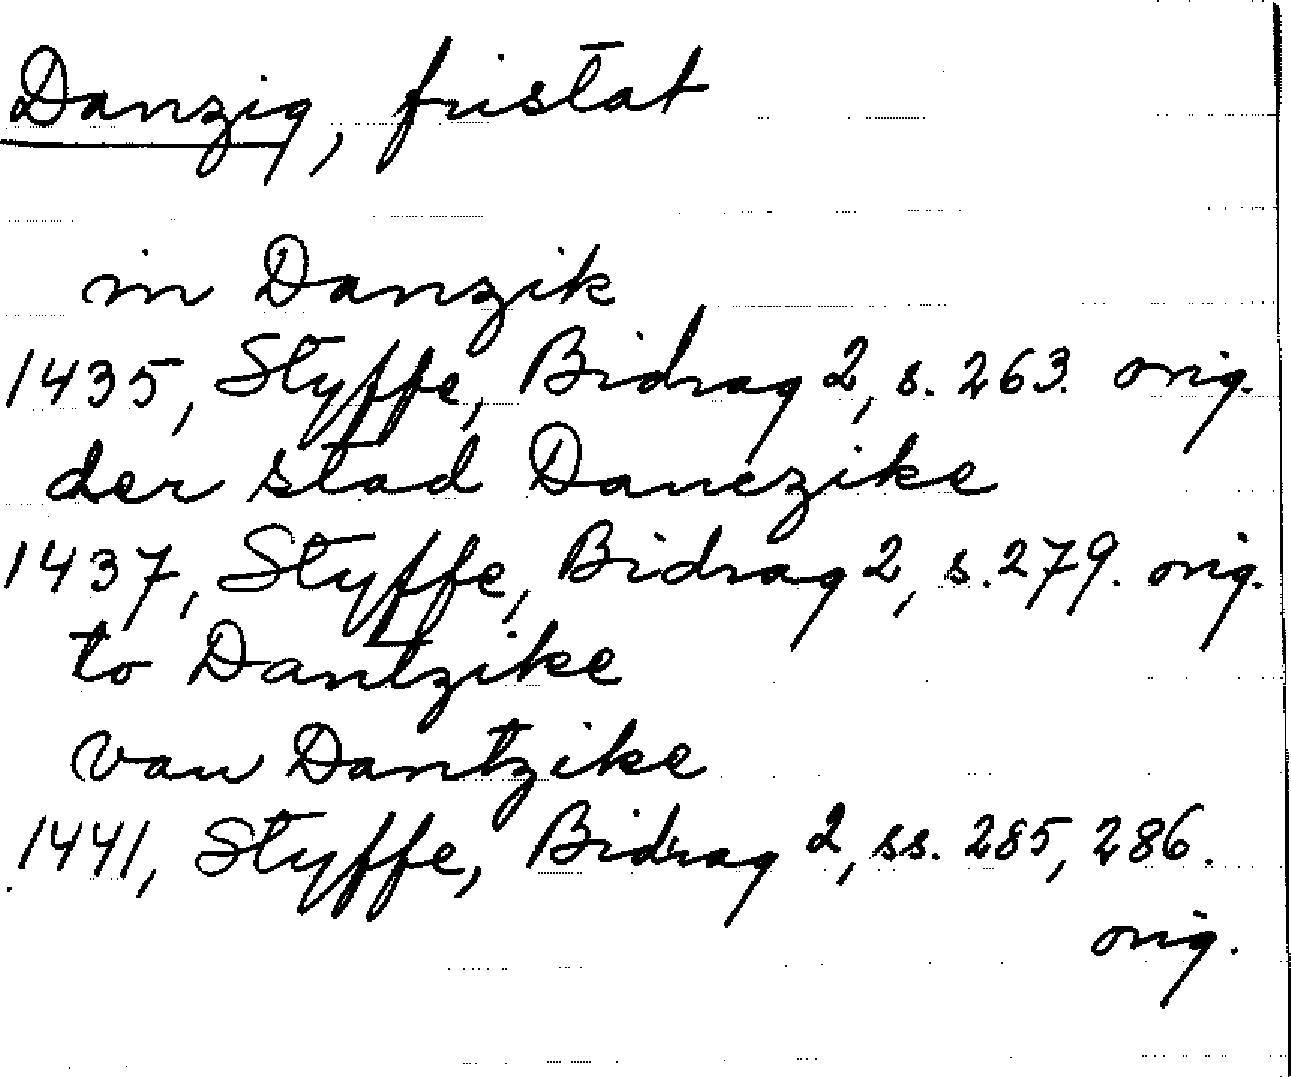 Danzig, fristat
in Danzik
1435, Styffe, Bidrag 2, s. 263. orig.
der stad Danczike
1437, Styffe, Bidrag 2, s. 279. orig.
to Dantzike
van Dantzike
1441, Styffe, Bidrag 2, ss. 285, 286.
orig.